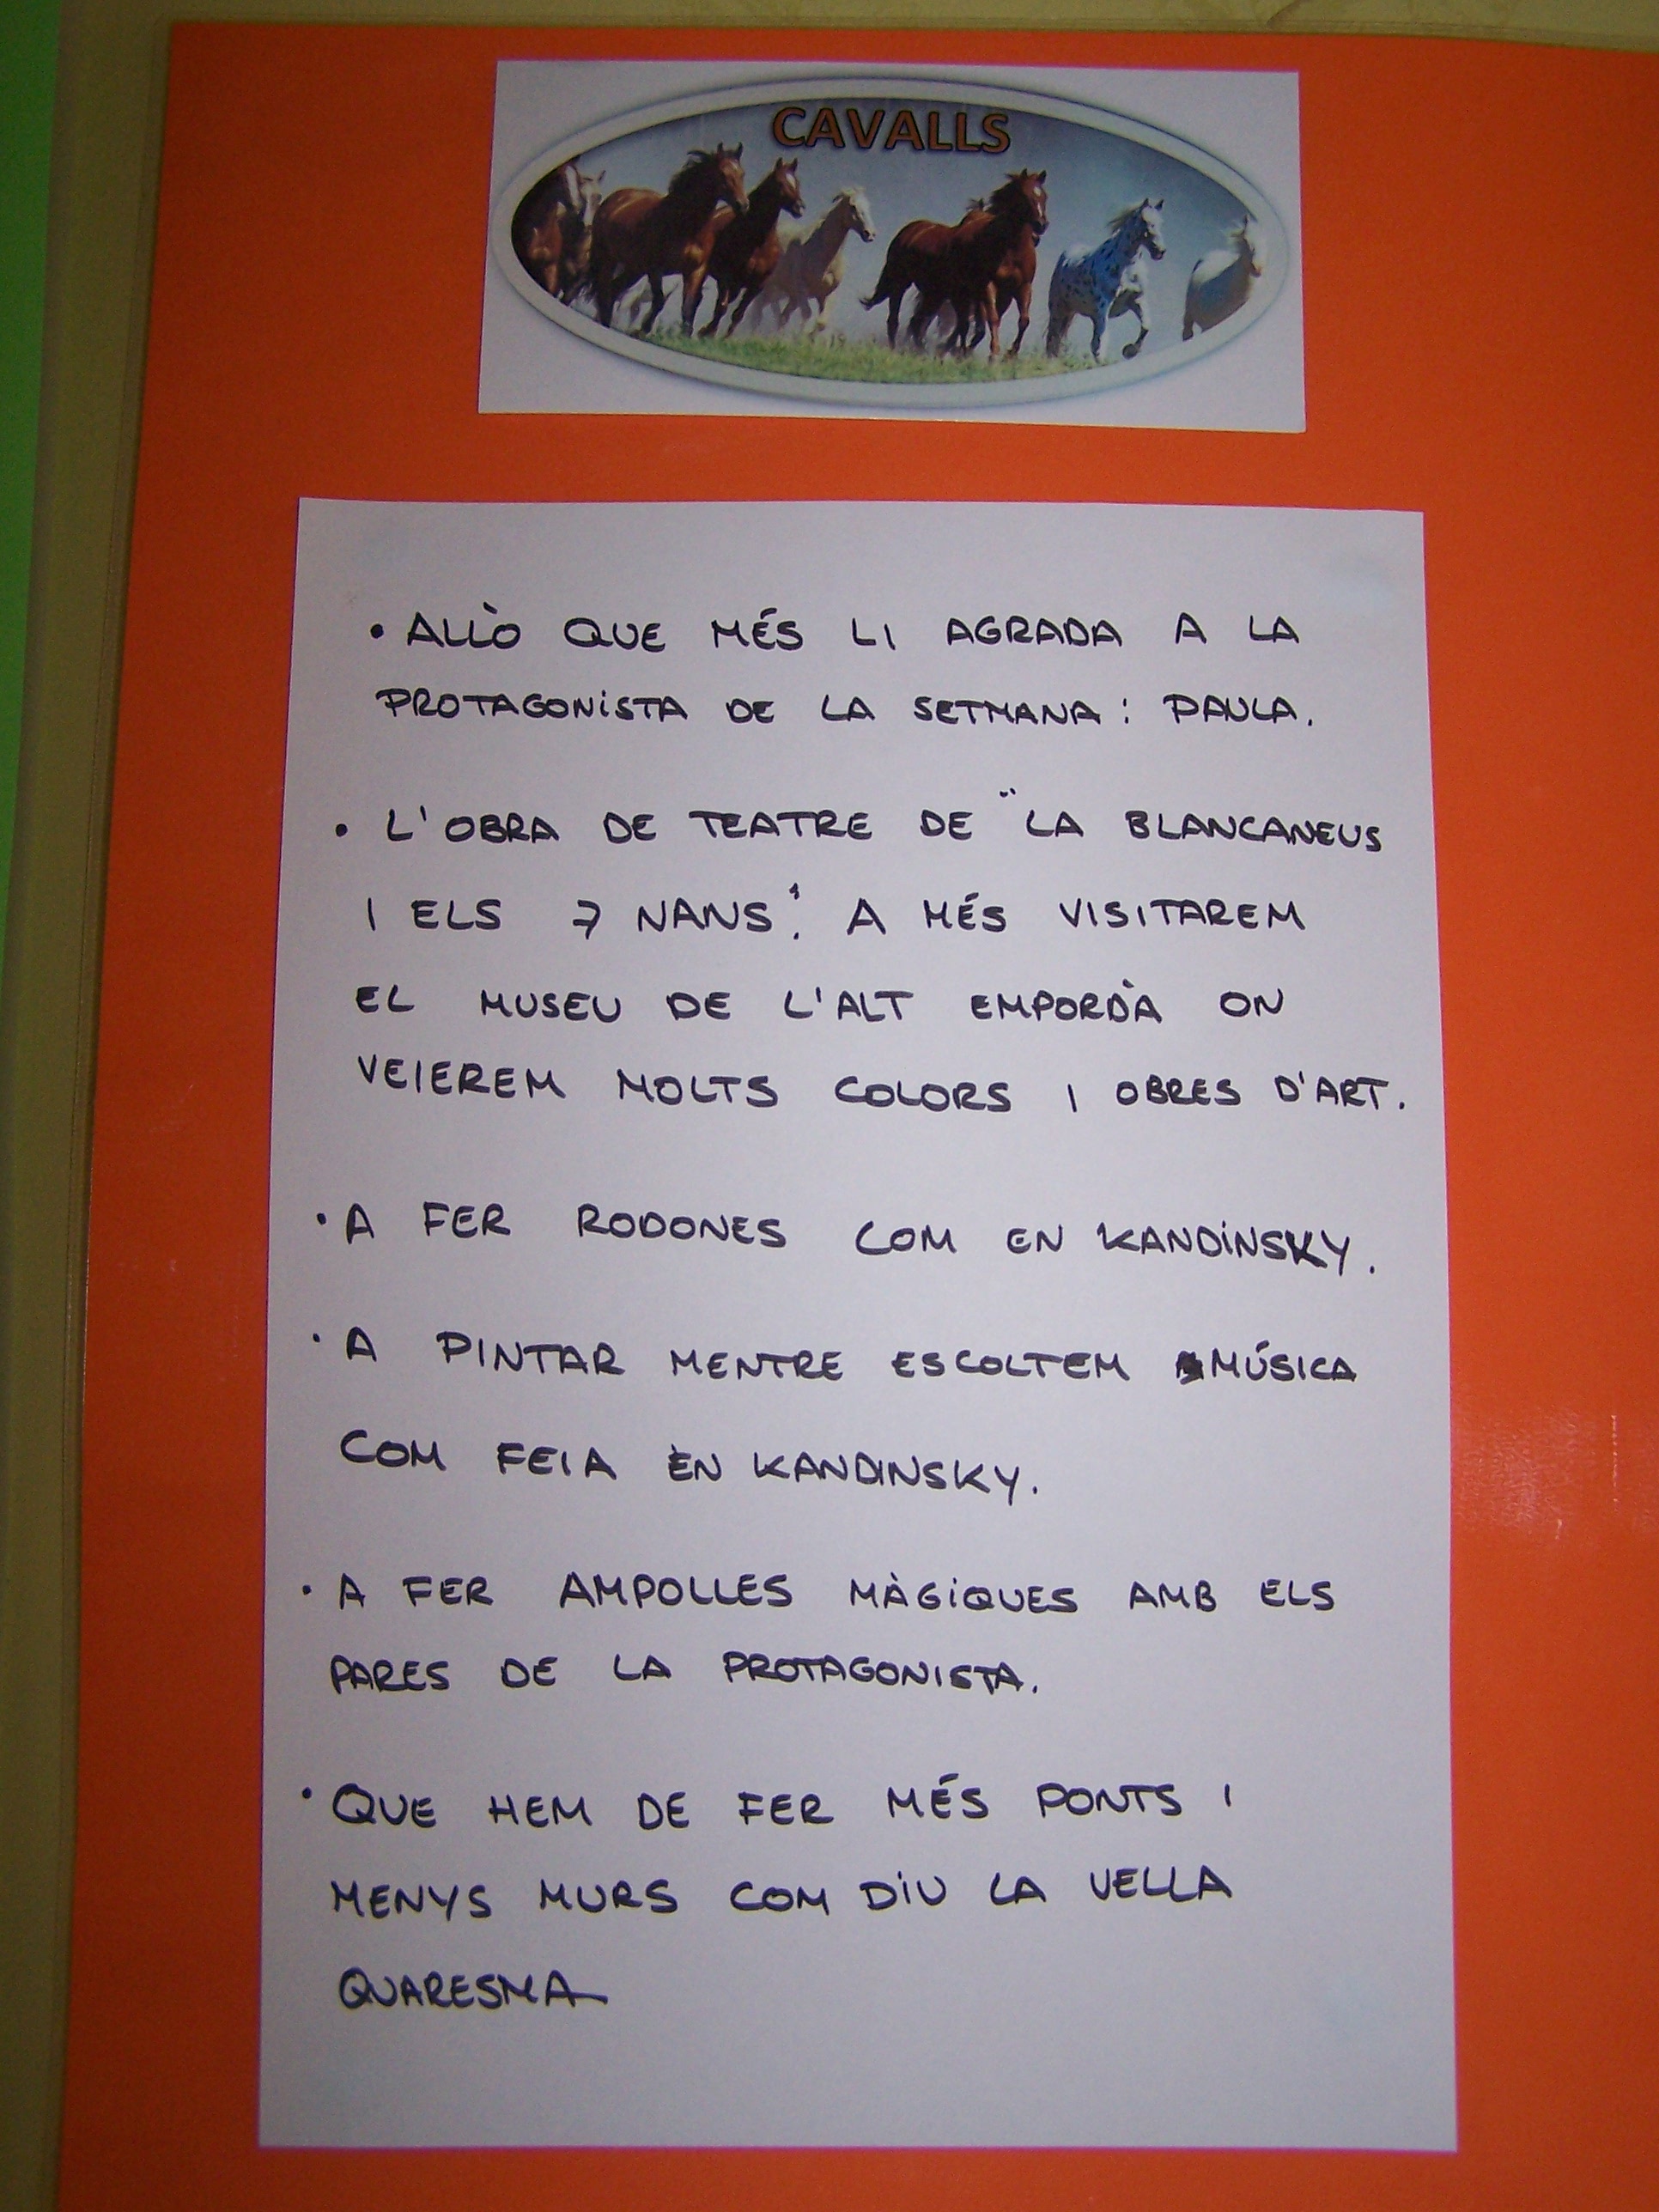 CAVALLS
• ALLÒ QUE MÉS LI AGRADA A LA
PROTAGONISTA DE LA SETMANA: PAULA.
• L'OBRA DE TEATRE DE "LA BLANCANEUS
I ELS 7 NANS". A MÉS VISITAREM
EL MUSEU DE L'ALT EMPORDÀ ON
VEIEREM MOLTS COLORS I OBRES D'ART.
• A FER RODONES COM EN KANDINSKY.
• A PINTAR MENTRE ESCOLTEM MÚSICA
COM FEIA EN KANDINSKY.
• A FER AMPOLLES MÀGIQUES AMB ELS
PARES DE LA PROTAGONISTA.
• QUE HEM DE FER MÉS PONTS I
MENYS MURS COM DIU LA VELLA
QUARESMA